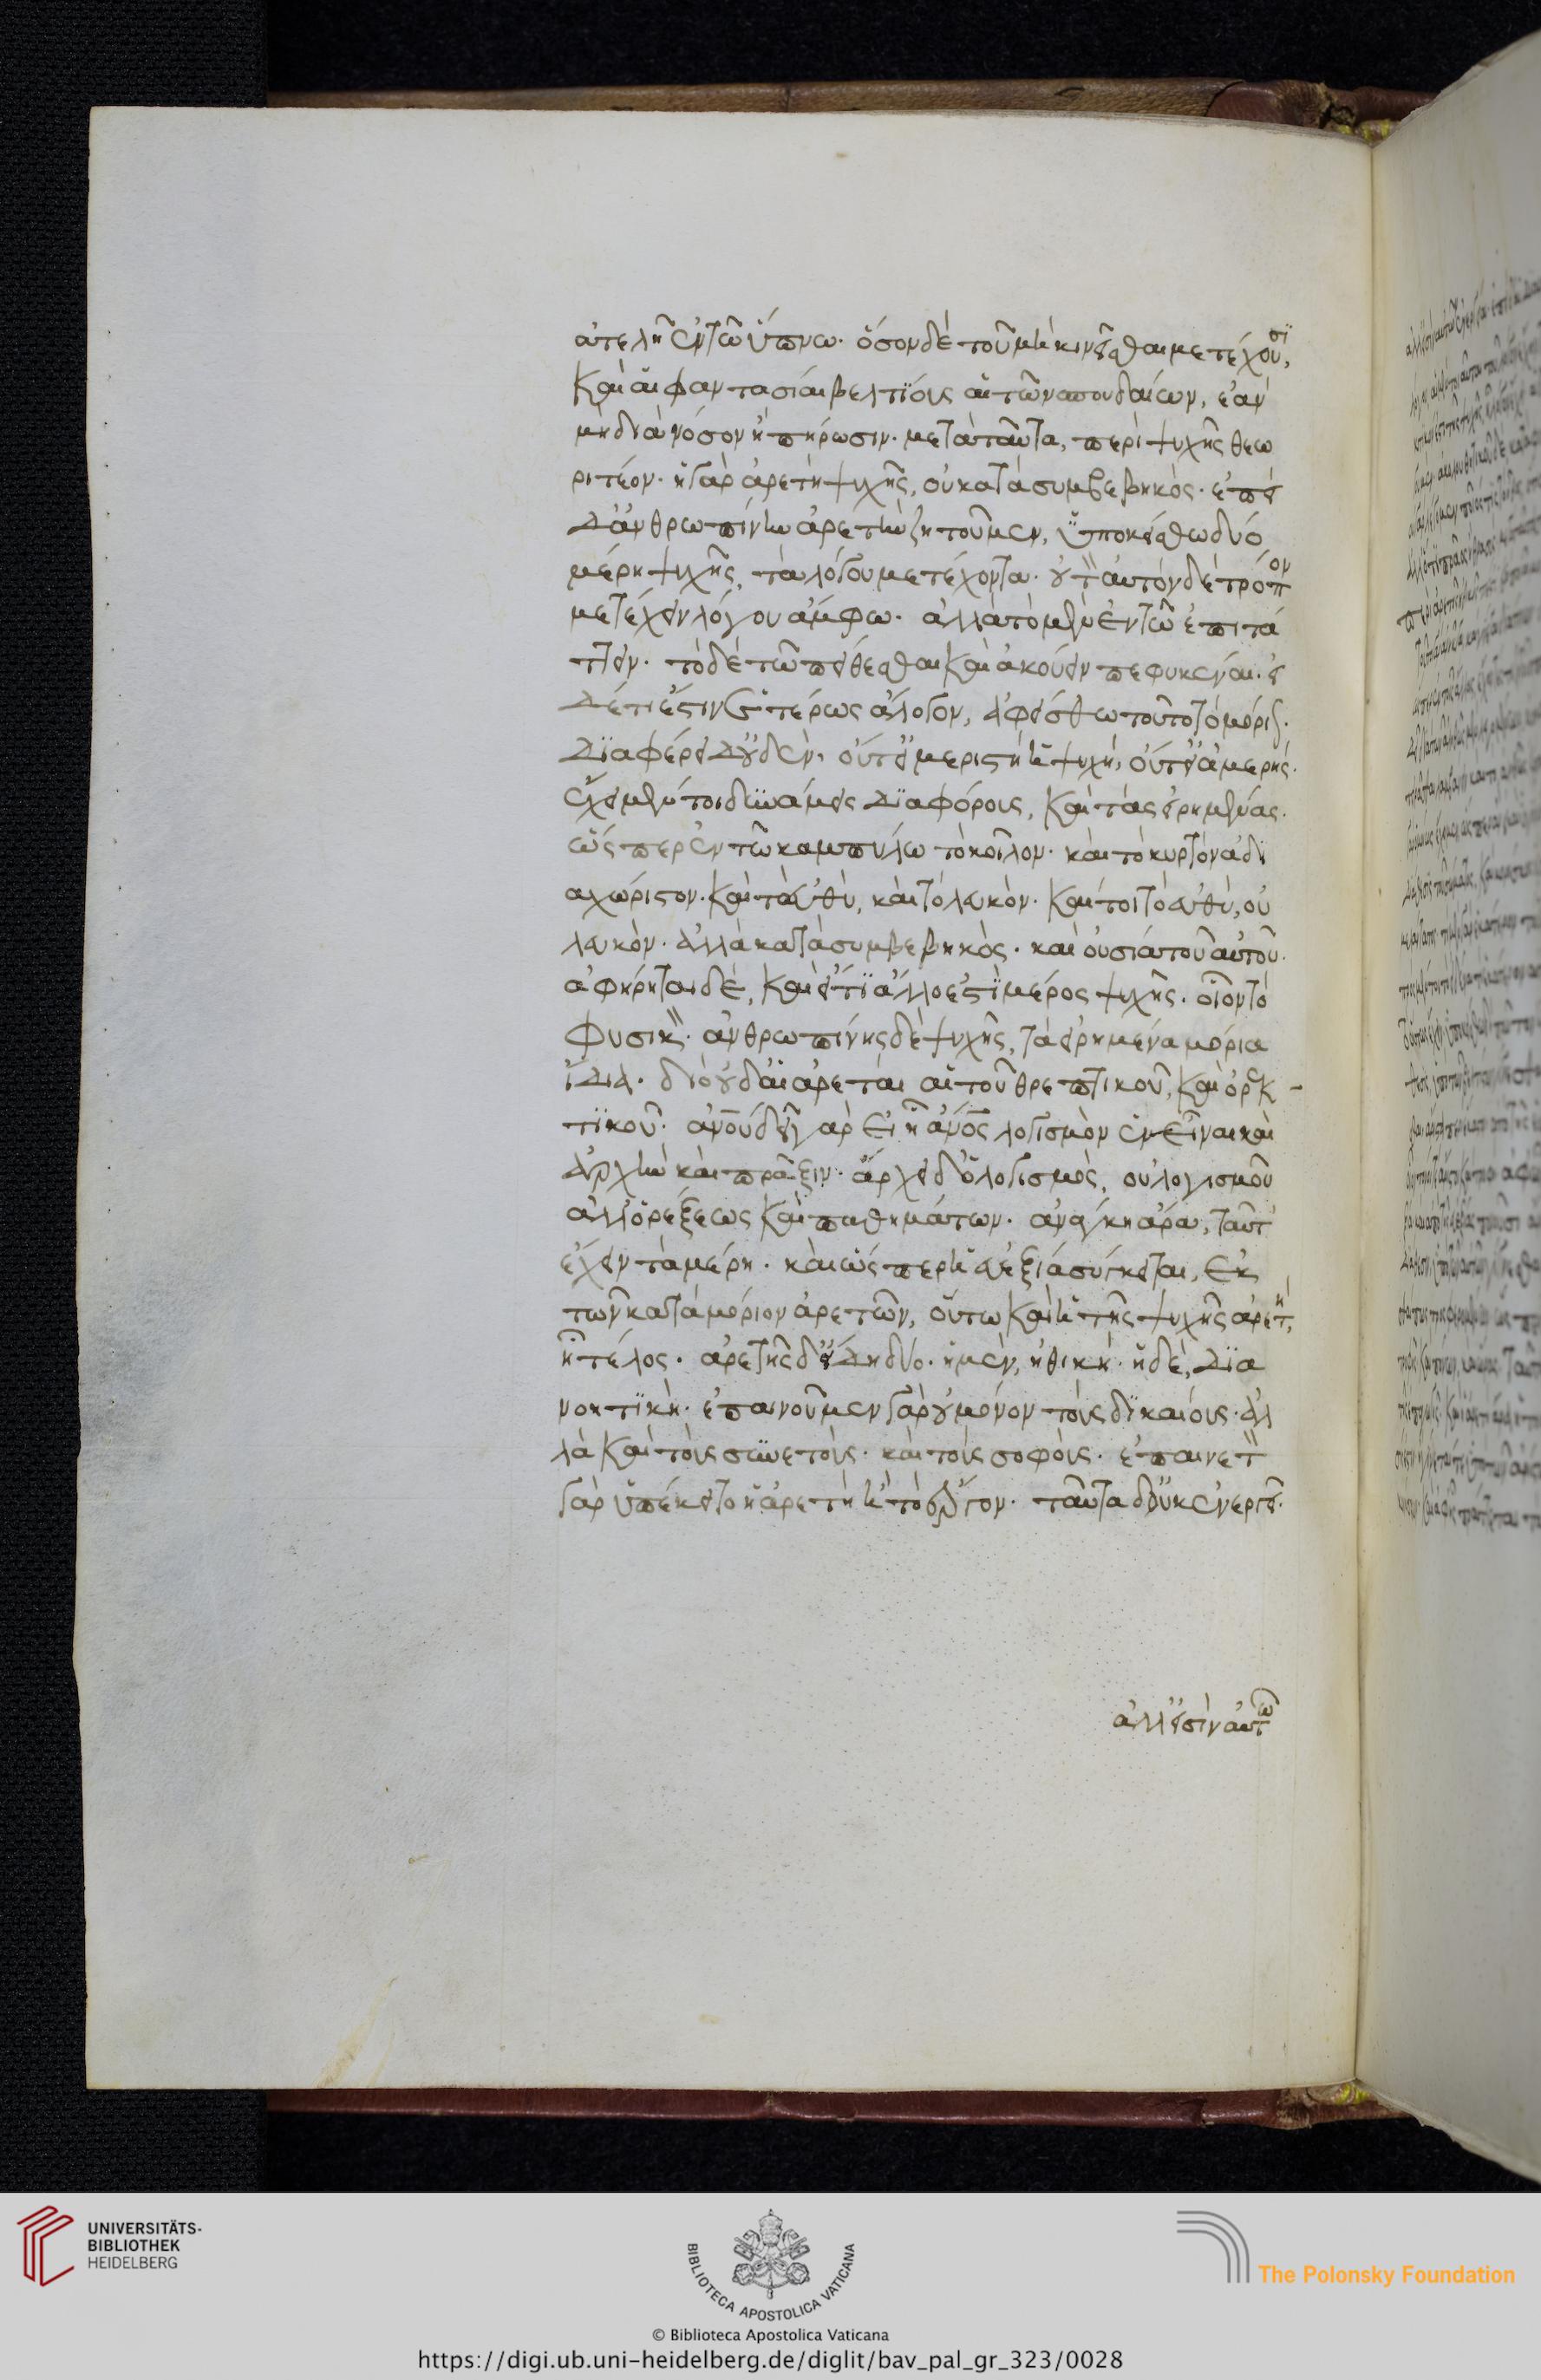 ἀτελὴς ἐν τῷ ὕπνῳ· ὅσον δὲ τοῦ μὴ κινεῖσθαι μετέχουσι,
καὶ αἱ φαντασίαι βελτίους αἱ τῶν σπουδαίων, ἐὰν
μὴ διὰ νόσον ἢ πήρωσιν. μετὰ ταῦτα, περὶ ψυχῆς θεω
ριτέον. ἡ γὰρ ἀρετὴ ψυχῆς, οὐ κατὰ συμβεβηκός. ἐπεὶ
δ' ἀνθρωπίνην ἀρετὴν ζητοῦμεν, ὑποκείσθω δύο
μέρη ψυχῆς, τὰ λόγου μετέχοντα. οὐ τὸν αὐτὸν δὲ τρόπον
μετέχειν λόγου ἄμφω. ἀλλὰ τὸ μὲν ἐν τῷ ἐπιτά
ττειν. τὸ δὲ τῷ πείθεσθαι καὶ ἀκούειν πεφυκέναι. εἰ
δέ τι ἐστὶν ἑτέρως ἄλογον, ἀφείσθω τοῦτο τὸ μόριον.
διαφέρει δ' οὐδέν, οὔτ' εἰ μεριστὴ ἡ ψυχή, οὔτ' εἰ ἀμερής.
ἔχει μέντοι δυνάμεις διαφόρους, καὶ τὰς εἰρημένας.
ὥσπερ ἐν τῷ καμπύλῳ τὸ κοῖλον. καὶ τὸ κυρτὸν ἀδι
αχώριστον. καὶ τὸ εὐθύ, καὶ τὸ λευκόν. καίτοι τὸ εὐθύ, οὐ
λευκόν. ἀλλὰ κατὰ συμβεβηκός. καὶ οὐσία τοῦ αὐτοῦ.
ἀφήρηται δέ, καὶ εἴ τι ἄλλο ἐστὶ μέρος ψυχῆς. οἷον τὸ
φυσικόν. ἀνθρωπίνης δὲ ψυχῆς, τὰ εἰρημένα μόρια
ἴδια. διὸ οὐδ' αἱ ἀρεταὶ αἱ τοῦ θρεπτικοῦ, καὶ ὀρεκ-
τικοῦ. ἀνοῦ δεῖ γὰρ εἰ ἢ ἄνος λογισμὸν ἐν εἶναι καὶ
ἀρχὴν καὶ πρᾶξιν. ἄρχει δ' ὁ λογισμός, οὐ λογισμοῦ
ἀλλ' ὀρέξεως καὶ παθημάτων. ἀνάγκη ἄρα, ταῦτ'
ἔχειν τὰ μέρη. καὶ ὥσπερ ἡ εὐεξία σύγκειται, ἐκ
τῶν κατὰ μόριον ἀρετῶν, οὕτω καὶ ἡ τῆς ψυχῆς ἀρετή,
ἢ τέλος. ἀρετῆς δ' εἴδη δύο. ἡ μέν, ἠθική. ἡ δέ, δια
νοητική. ἐπαινοῦμεν γὰρ οὐ μόνον τοὺς δικαίους. ἀλ
λὰ καὶ τοὺς συνετούς. καὶ τοὺς σοφούς. ἐπαινετὸν
γὰρ ὑπέκειτο ἡ ἀρετὴ ἢ τὸ ἔργον. ταῦτα δ' οὐκ ἐνεργεῖ.
ἀλλ' εἰσὶν αὐτῶ
UNIVERSITÄTS-
BIBLIOTHEK
HEIDELBERG
BIBLIOTECA APOSTOLICA VATICANA
The Polonsky Foundation
© Biblioteca Apostolica Vaticana
https://digi.ub.uni-heidelberg.de/diglit/bav_pal_gr_323/0028